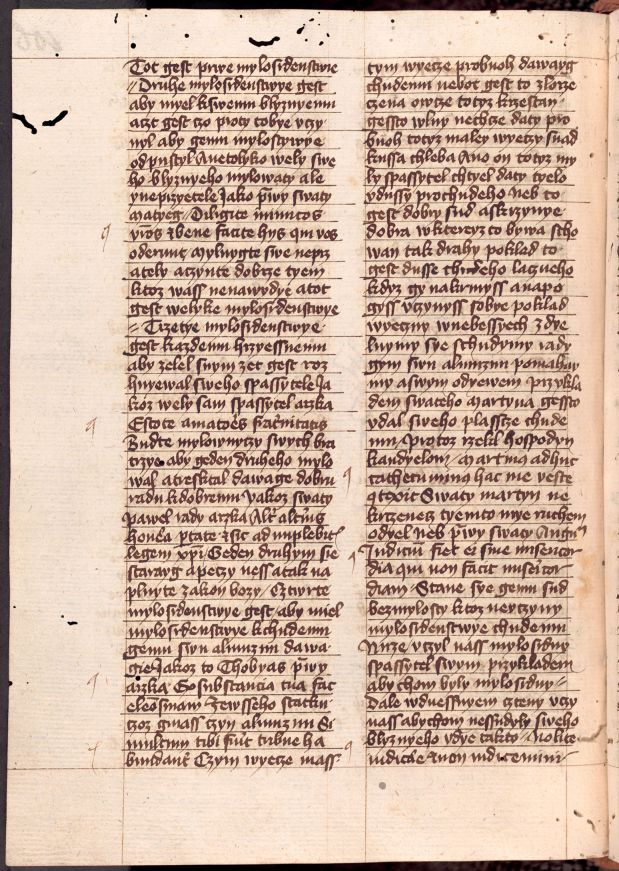 Tot gest prwe mylosidenstwie
Druhe mylosidenstwye gest
aby myel kswemu blyznyemu
aczt gest czo proty tobye vczy
nyl aby gemu mylostywye
odpustyl Anetolyko wely swe
ho blyznyeho mylowaty ale
yneprzyetele Jako prwy swaty
matyeg Diligite inimicos
vros et bene facite hys qui vos
oderunt mylugte swe neprz
ately aczynte dobrze tyem
ktoz wass nenawydye atot
gest welyke mylosidenstwye
Trzetye mylosidenstwye
gest kazdemu hrzyessnemu
aby zelel snym zet gest roz
hnyewal sweho spassytele Ja
koz wely sam spassytel arzka
Estote amatores fraternitatis
Budte mylownyczy swych bra
trzye aby geden druheho mylo
wal atresktal dawage dobru
radu kdobremu Jakoz swaty
pawel rady arzka Alter alterius
honera portate et sic adimplebitis
legem xpi Geden druhym sie
starayg apeczy ness atak na
plnyte zakon bozy Cztwrte
mylosidenstwye gest aby miel
mylosidenstwye kchudemu
gemu swu almuznu dawa
gie Jakoz to Thobyas prwy
arzka Ex substancia tua fac
eleosinam Ztwsseho statku
czoz gmass czyn almuznu Si
multum tibi fuerit tribue ha
bundanter Czym wyecze mass
tym wyecze probuoh dawayg
chudemu nebot gest to zlorze
czena owcze totyz krzestan
gessto wlny nechcze daty pro
buoh totyz maley wyeczy snad
kussa chleba Ano on totyz my
ly spassytel chtyel daty tyelo
ydussy prochudeho neb to
gest dobry sud askrzynye
dobra wkterezz to bywa scho
wan tak drahy poklad to
gest dusse chudeho laczneho
kdyz gy nakrmyss anapo
gyss vczynyss sobye poklad
wyeczny wnebessyech zdye
luymy sye schudymy rady
gym swu almuznu pomahay
my aswym odyewem przykla
dem swateho Martyna gessto
vdal sweho plasstze chude
mu Protoz rzekl hospodyn
kandyelom Martinus adhuc
cathecuminus hac me veste
contexit Swaty martyn ne
krzenecz tyemto mye ruchem
odyel neb prwy swaty Augustin
Judicium fiet ei sine misericor
dia qui non facit misericor
diam Stane sye gemu sud
bezmylosty ktoz neyczyny
mylosidenstwye chudemu
Nuze vczyl nass mylosidny
spassytel swym przykladem
abychom byly mylosidny
Dale wdnessnyem czteny vczy
nass abychom nessudyly sweho
blyznyeho vdye takto Nolite
iudicare et non iudicemini